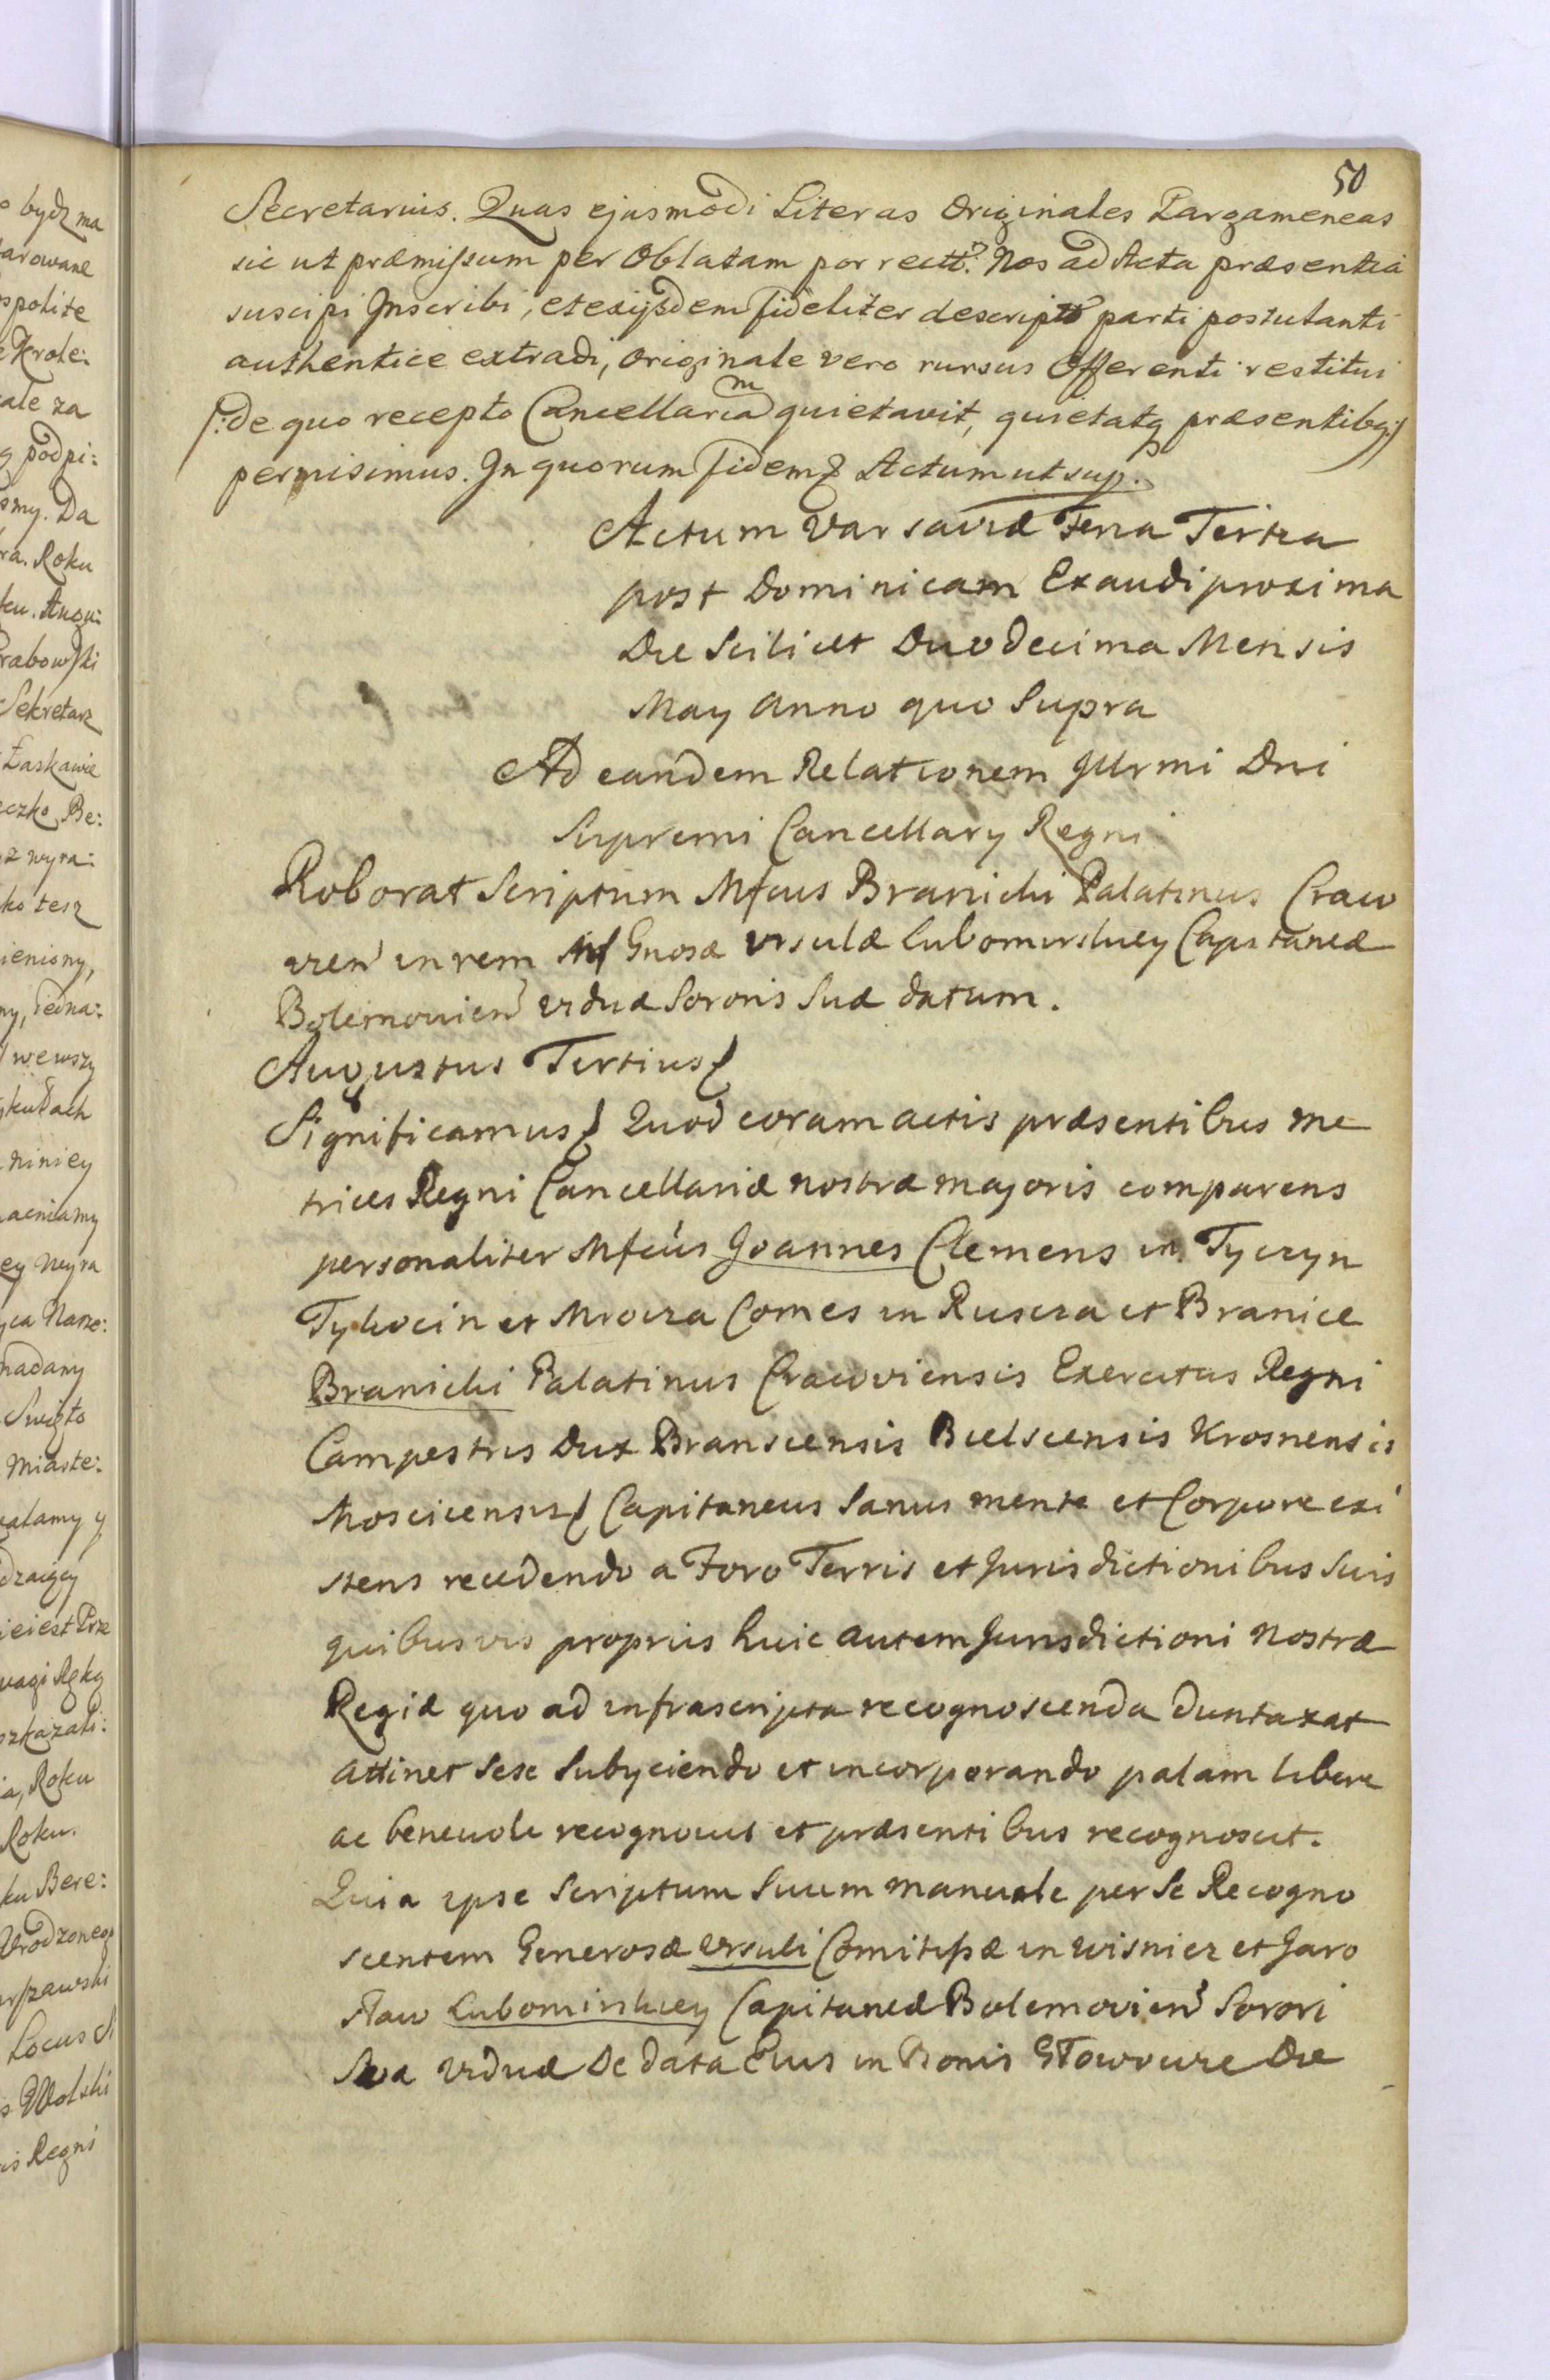 50
Secretarius. Quas ejusmodi Literas Originales Pargameneas
sic ut præmissum per Oblatam porrectt: Nos ad Acta præsentia
suscipi Inscribi, et exijsdem fideliter descriptt parti postulanti
authentice extradi, Originale vero rursus Offerenti restitui
/: de quo recepto Cancellariam quietavit, quietatq præsentibg :/
permisimus. In quorum fidem Actum ut sup.
Actum Varsaviæ Feria Tertia
post Dominicam Exaudi proxima
Die Scilicet Duodecima Mensis
May Anno quo Supra
Ad eandem Relationem Illrmi Dni
Supremi Cancellary Regni
Roborat Scriptum Mfcus Branicki Palatinus Craco
vien in rem Gnosæ Ursulæ Lubomirskiey Capitaneæ
Bolemovien viduæ Sororis Suæ datum.
Augustus Tertius
Significamus Quod coram actis præsentibus Me
trices Regni Cancellariæ nostræ majoris comparens
personaliter Mfcus Joannes Clemens in Tyczyn
Tykocin et Mrocza Comes in Ruscza et Branice
Branicki Palatinus Cracoviensis Exercitus Regni
Campestris Dux Branscensis Bielscensis Krosnensis
Moscicensis Capitaneus Sanus mente et Corpore exi
stens recedendo a Foro Terris et Jurisdictionibus Suis
quibusvis proprus huic autem Jurisdictioni Nostræ
Regiæ quo ad infrascripta recognoscenda duntaxat
attinet Sese Subyciendo et incorporando palam libere
ac benevole recognovit et præsentibus recognoscit.
Quia ipse Scriptum Suum manuale per Se Recogno
scentem Generosæ Ursuli Comitissæ in Wisnicz et Jaro
slaw Lubomirskiey Capitaneæ Bolemovien Sorori
Suæ viduæ De data Eius in Bonis Głowcze Die